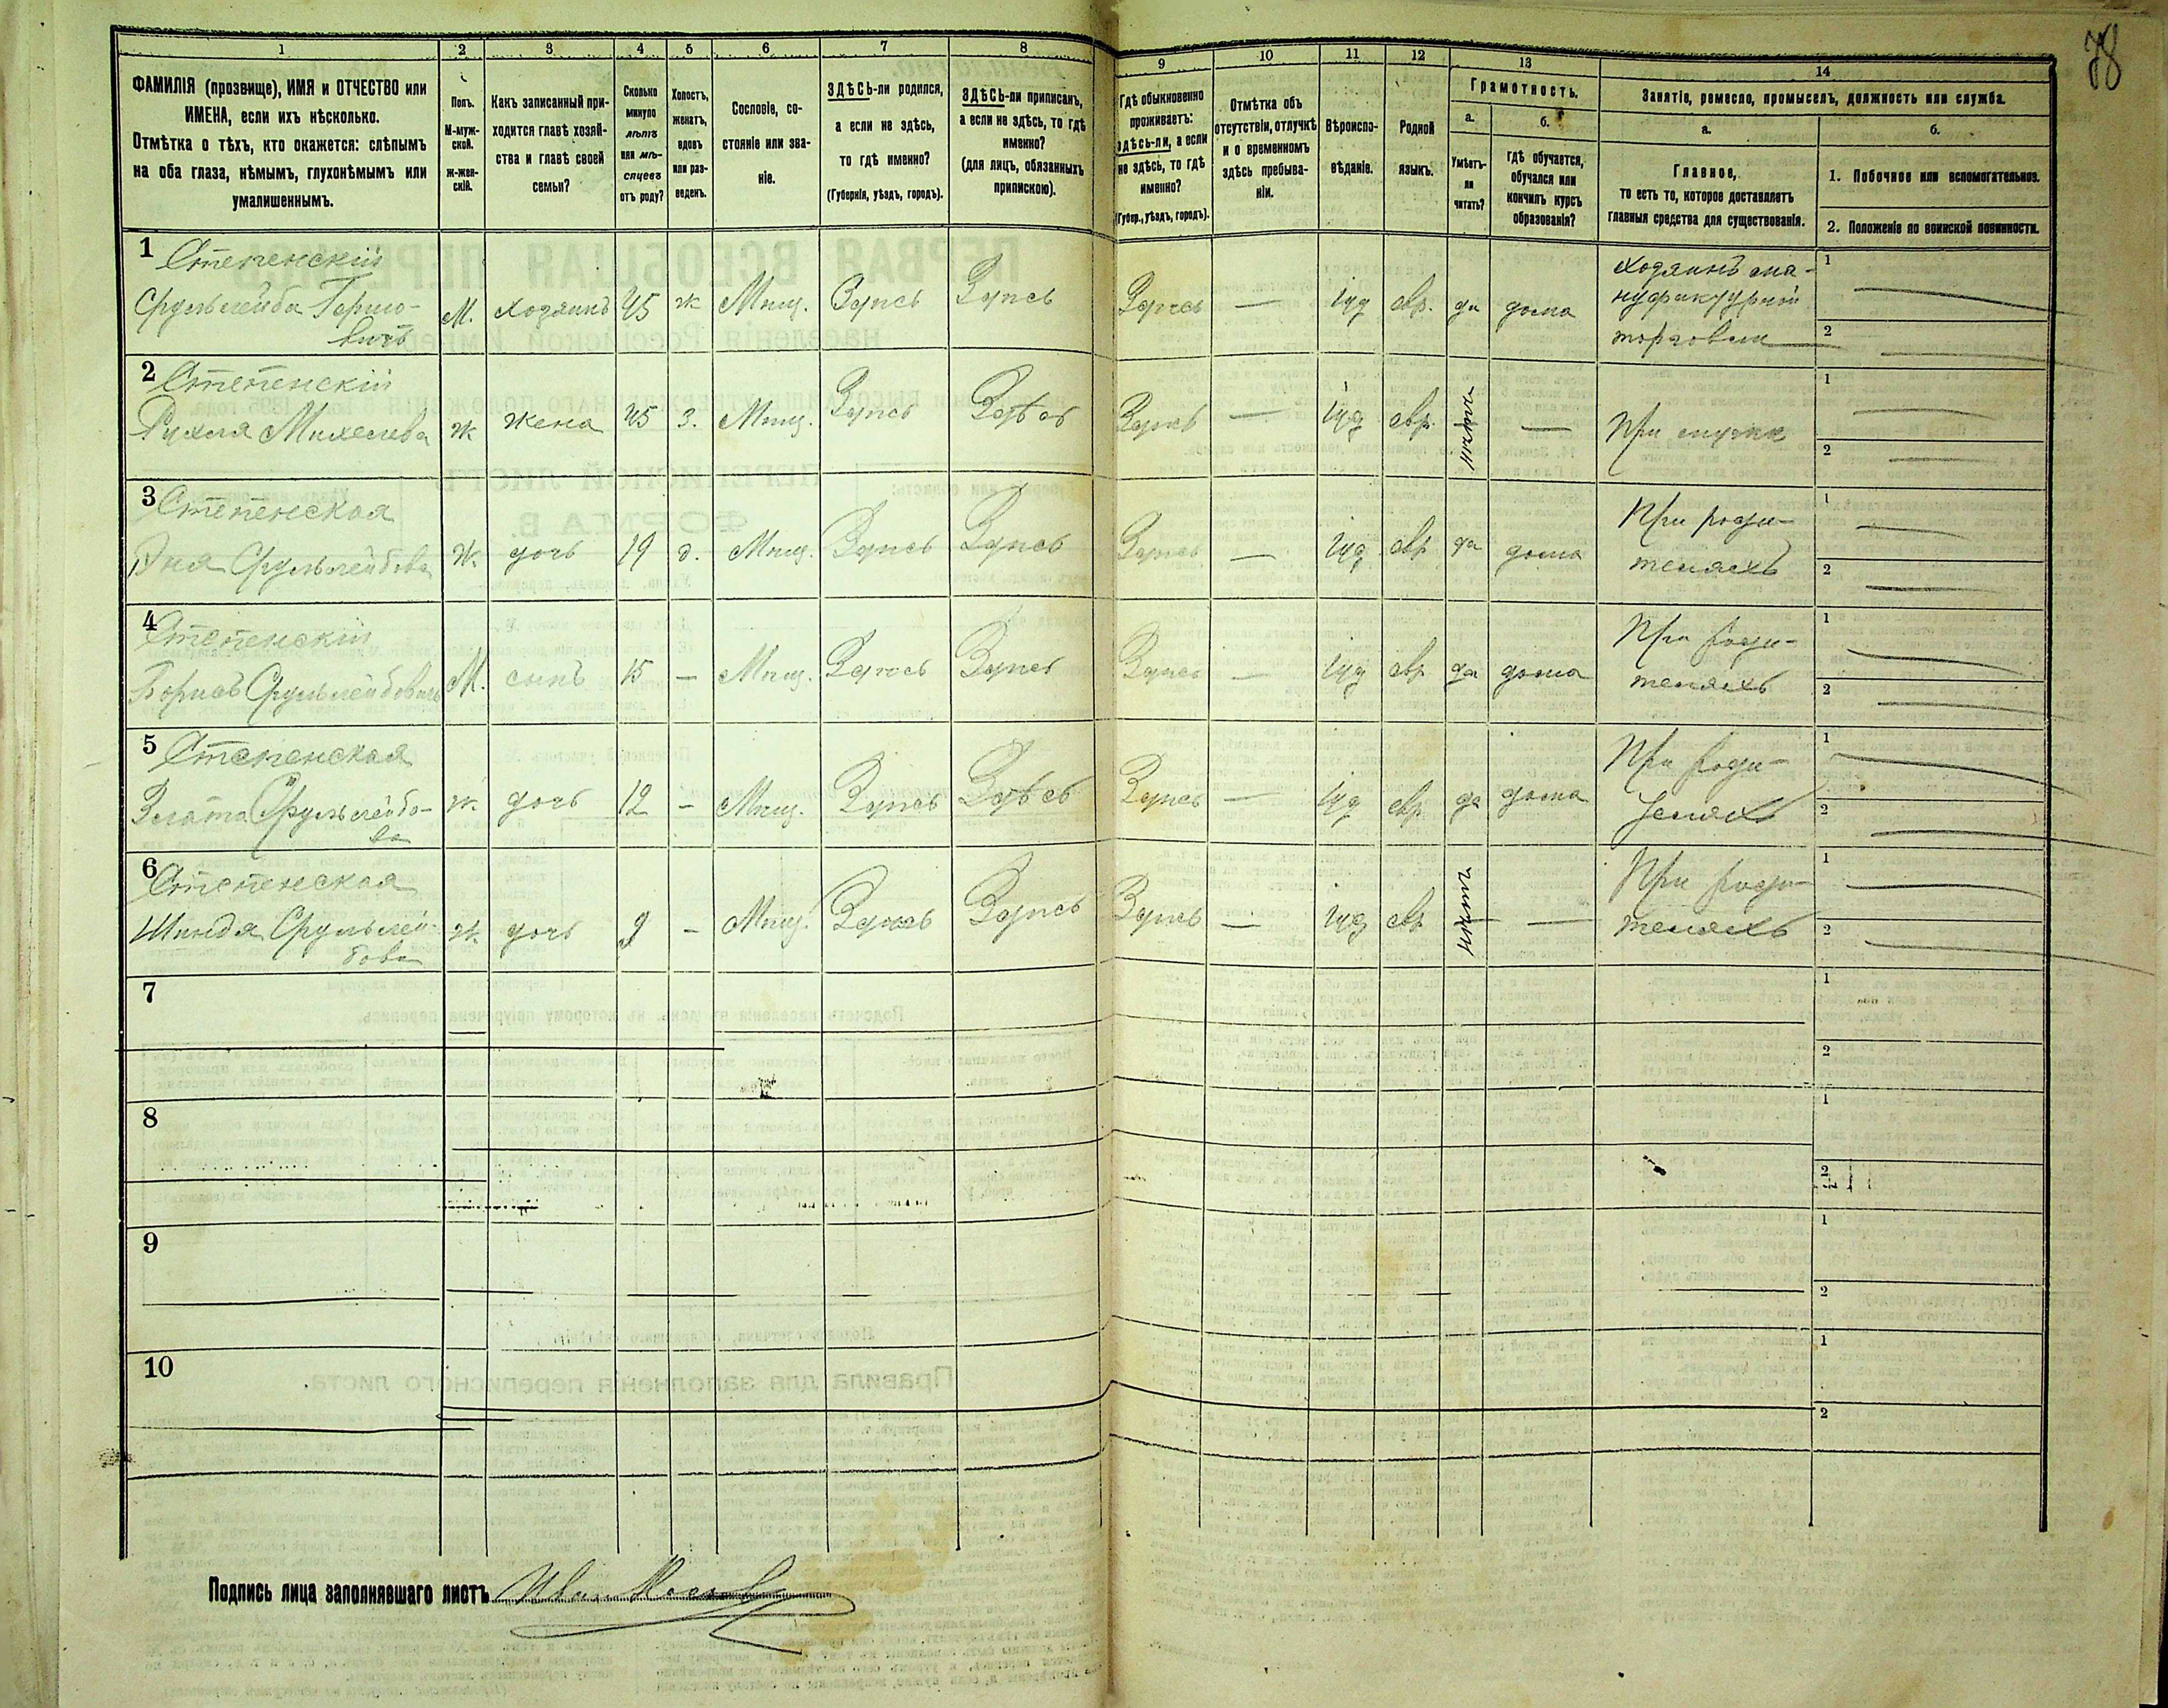 78
1 2 3 4 5 6 7 8 9 10 11 12 13 14
ФАМИЛІЯ (прозвище), ИМЯ и ОТЧЕСТВО или
ИМЕНА, если ихъ нѣсколько.
Отмѣтка о тѣхъ, кто окажется: слѣпымъ
на оба глаза, нѣмымъ, глухонѣмымъ или
умалишеннымъ.
Полъ.
М-муж-
ской.
ж-жен-
скій.
Какъ записанный при-
ходится главѣ хозяй-
ства и главѣ своей
семьи?
Сколько
минуло
лѣтъ
или мѣ-
сяцевъ
отъ роду?
Холостъ,
женатъ,
вдовъ
или раз-
веденъ.
Сословіе, со-
стояніе или зва-
ніе.
ЗДѢСЬ-ли родился,
а если не здѣсь,
то гдѣ именно?
(Губернія, уѣздъ, городъ).
ЗДѢСЬ-ли приписанъ,
а если не здѣсь, то гдѣ
именно?
(для лицъ, обязанныхъ
припискою).
Гдѣ обыкновенно
проживаетъ:
здѣсь-ли, а если
не здѣсь, то гдѣ
именно?
(Губер., уѣздъ, городъ).
Отмѣтка объ
отсутствіи, отлучкѣ
и о временномъ
здѣсь пребыва-
ніи.
Вѣроиспо-
вѣданіе.
Родной
языкъ.
Грамотность.
а.
Умѣетъ-
ли
читать?
б.
гдѣ обучается,
обучался или
кончилъ курсъ
образованія?
Занятіе, ремесло, промыселъ, должность или служба.
а.
Главное,
то есть то, которое доставляетъ
главныя средства для существованія.
б.
1. Побочное или вспомогательное.
2. Положеніе по воинской повинности.
1 Степенскій
Срульлейба Гершо-
вичъ
М. Хозяинъ 45 ж Мѣщ. Здѣсь Здѣсь Здѣсь — іуд евр. да дома
Хозяинъ ма-
нуфактурной
торговли
1
2
2 Степенскій
Рухля Михелева ж жена 45 з. Мѣщ. Здѣсь Здѣсь Здѣсь — іуд евр. нѣтъ — При мужѣ
1
2
3 Степенская
Эня Срульлейбова Ж. дочь 19 д. Мѣщ. Здѣсь Здѣсь Здѣсь — іуд евр да дома
При роди-
теляхъ
1
2
4 Степенскій
Борисъ Срульлейбовичъ М. сынъ 15 — Мѣщ. Здѣсь Здѣсь Здѣсь — іуд евр да дома
При роди-
теляхъ
1
2
5 Степенская
Злата Срульлейбо-
ва
ж. дочь 12 — Мѣщ. Здѣсь Здѣсь Здѣсь — іуд евр. да дома
При роди-
теляхъ
1
2
6 Степенская
Шиндя Срульлей-
бова
ж. дочь 9 — Мѣщ. Здѣсь Здѣсь Здѣсь — іуд евр нѣтъ —
При роди-
теляхъ
1
2
7
1
2
8
1
2
9
1
2
10
1
2
Подпись лица заполнявшаго листъ Иван